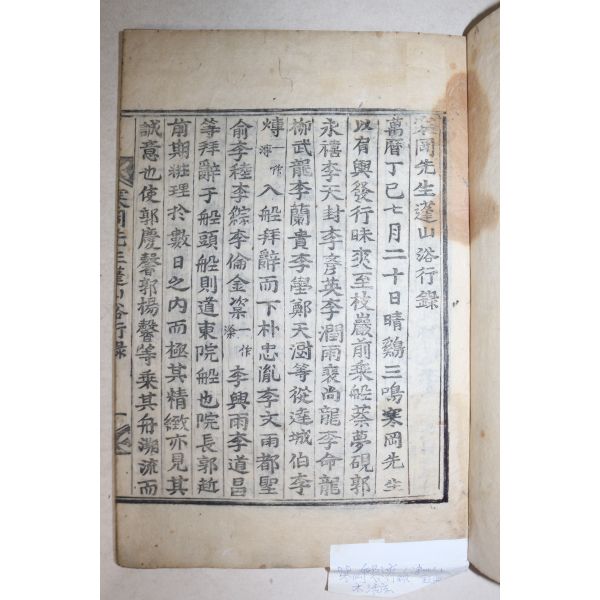 寒岡先生蓬山浴行錄
萬曆丁巳七月二十日晴鷄三鳴寒岡先生
以有興發行昧爽至枝巖前乘船蔡夢硯郭
永禧李天封李彦英李潤雨裵尚龍李命龍
柳武龍李蘭貴李𡒄鄭天澍等從逵城伯李
煿一作溥入船拜辭而下朴忠胤李文雨都聖
俞李稑李綜李倫金㴾一作深李興雨李道昌
等拜辭于船頭船則道東院船也院長郭赾
前期粧理於數日之內而極其精緻亦見其
誠意也使郭慶馨郭楊馨等乘其舟溯流而
寒岡先生蓬山浴行錄
一